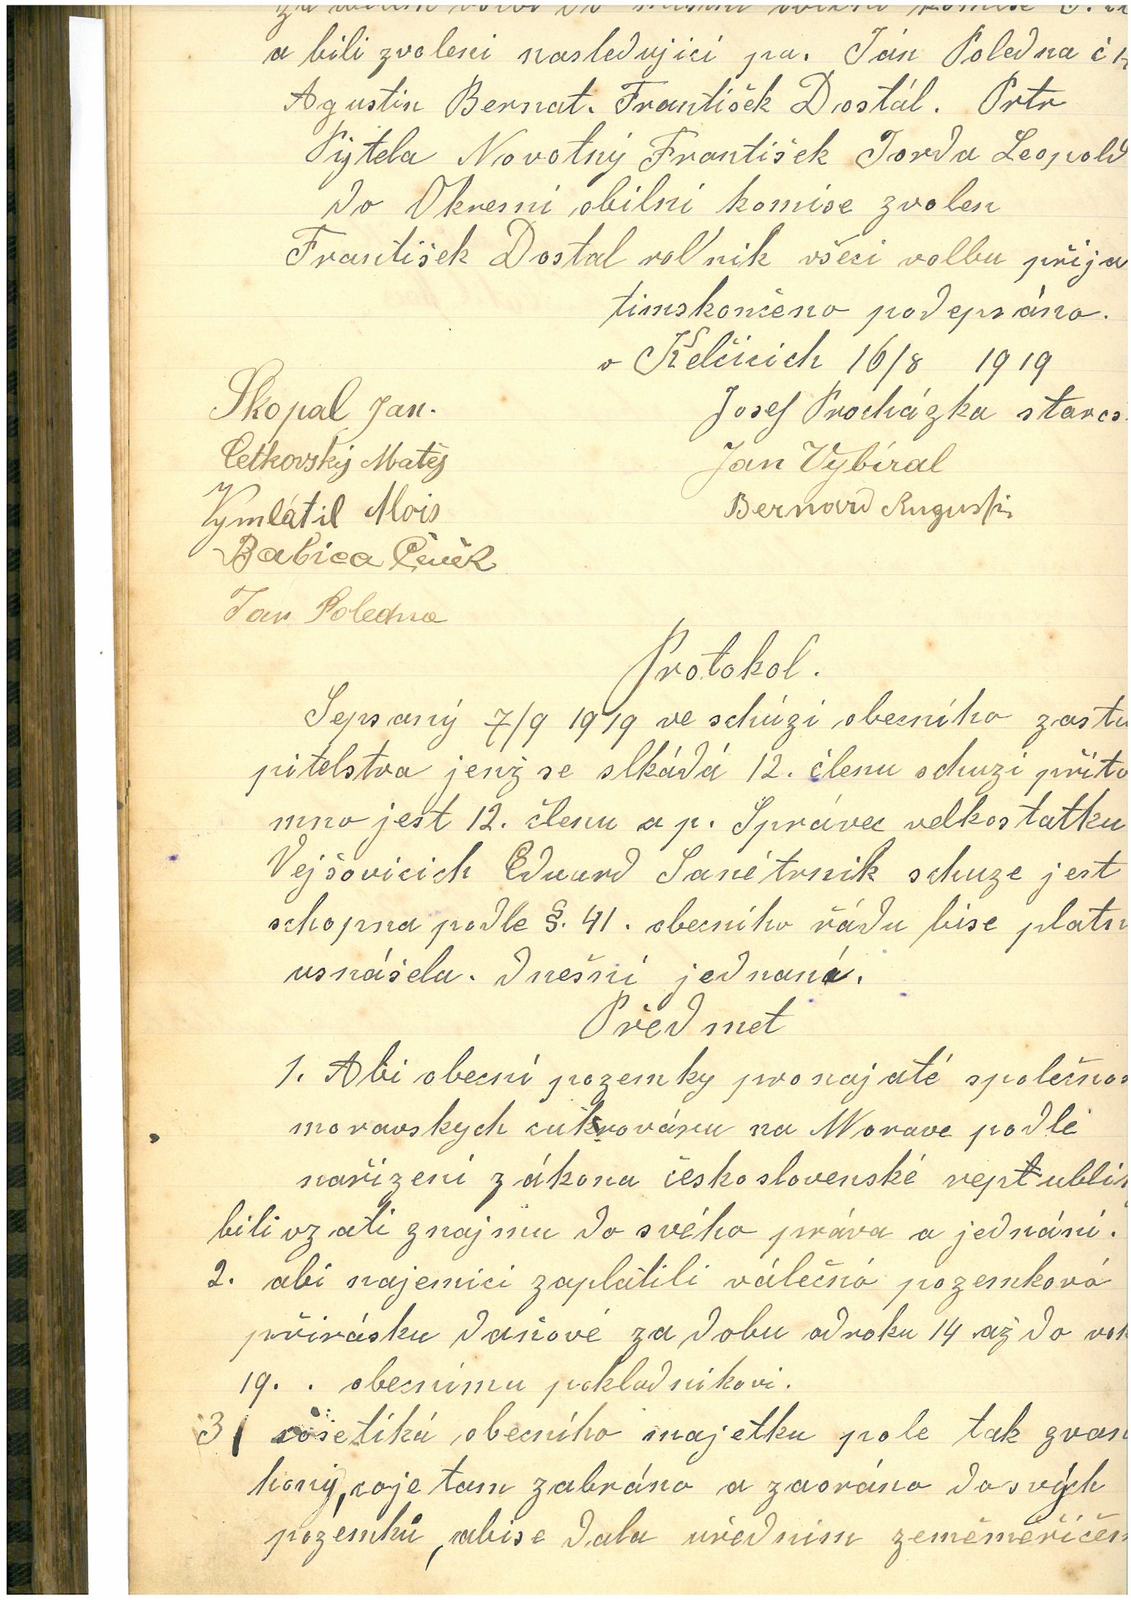 a bili zvoleni nasledujici pa. Ján Poledna č
Agustin Bernat. František Dostál. Prtr
Výtela Novotný František Jorda Leopold
do Okresní obilní komise zvolen
František Dostal rolník všeci volbu přija
timskončeno podepsáno.
v Kelčicich 16/8 1919
Skopal Jan.
Josef Procházka staros
Cetkovský Matěj
Jan Vybíral
Vymlátil Alois
Bernard Augustin
Babica Čeněk
Jan Poledna
Protokol.
Sepsaný 7/9 1919 ve schúzi obecního zastu
pitelstva jenž se slkádá 12. členu schuzi příto
mno jest 12. členu a p. Správce velkostatku
Vejšovicich Eduard Sanétrnik schuze jest
schopna podle §. 41. obecního řádu bise platn
usnášela. dnešní jednaná.
Předmet
1. Abi obecní pozemky pronajaté společnos
moravskych cukrováru na Morave podlé
nařizení zákona československé republi
bili vzati znajmu do svého práva a jednání.
2. abi najemici zaplatili válečnó pozemkovó
přirásku daňové za dobu odroku 14 až do rok
19. . obecnímu pokladnikovi.
3 sóšetiká obecního majetku pole tak zvan
hony, coje tam zabráno a zaoráno dosvých
pozemků, abise dala uředním zeměměřičem